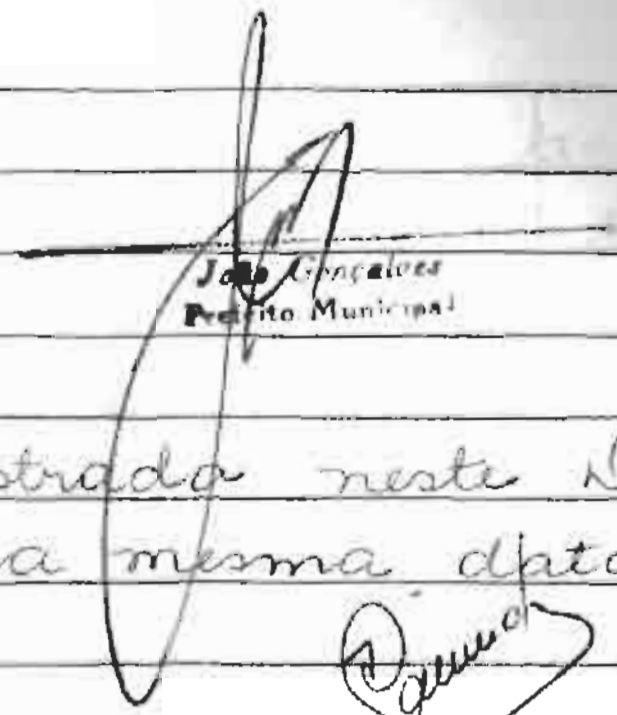 João Gonçalves
Prefeito Municipal
strada neste
a mesma data